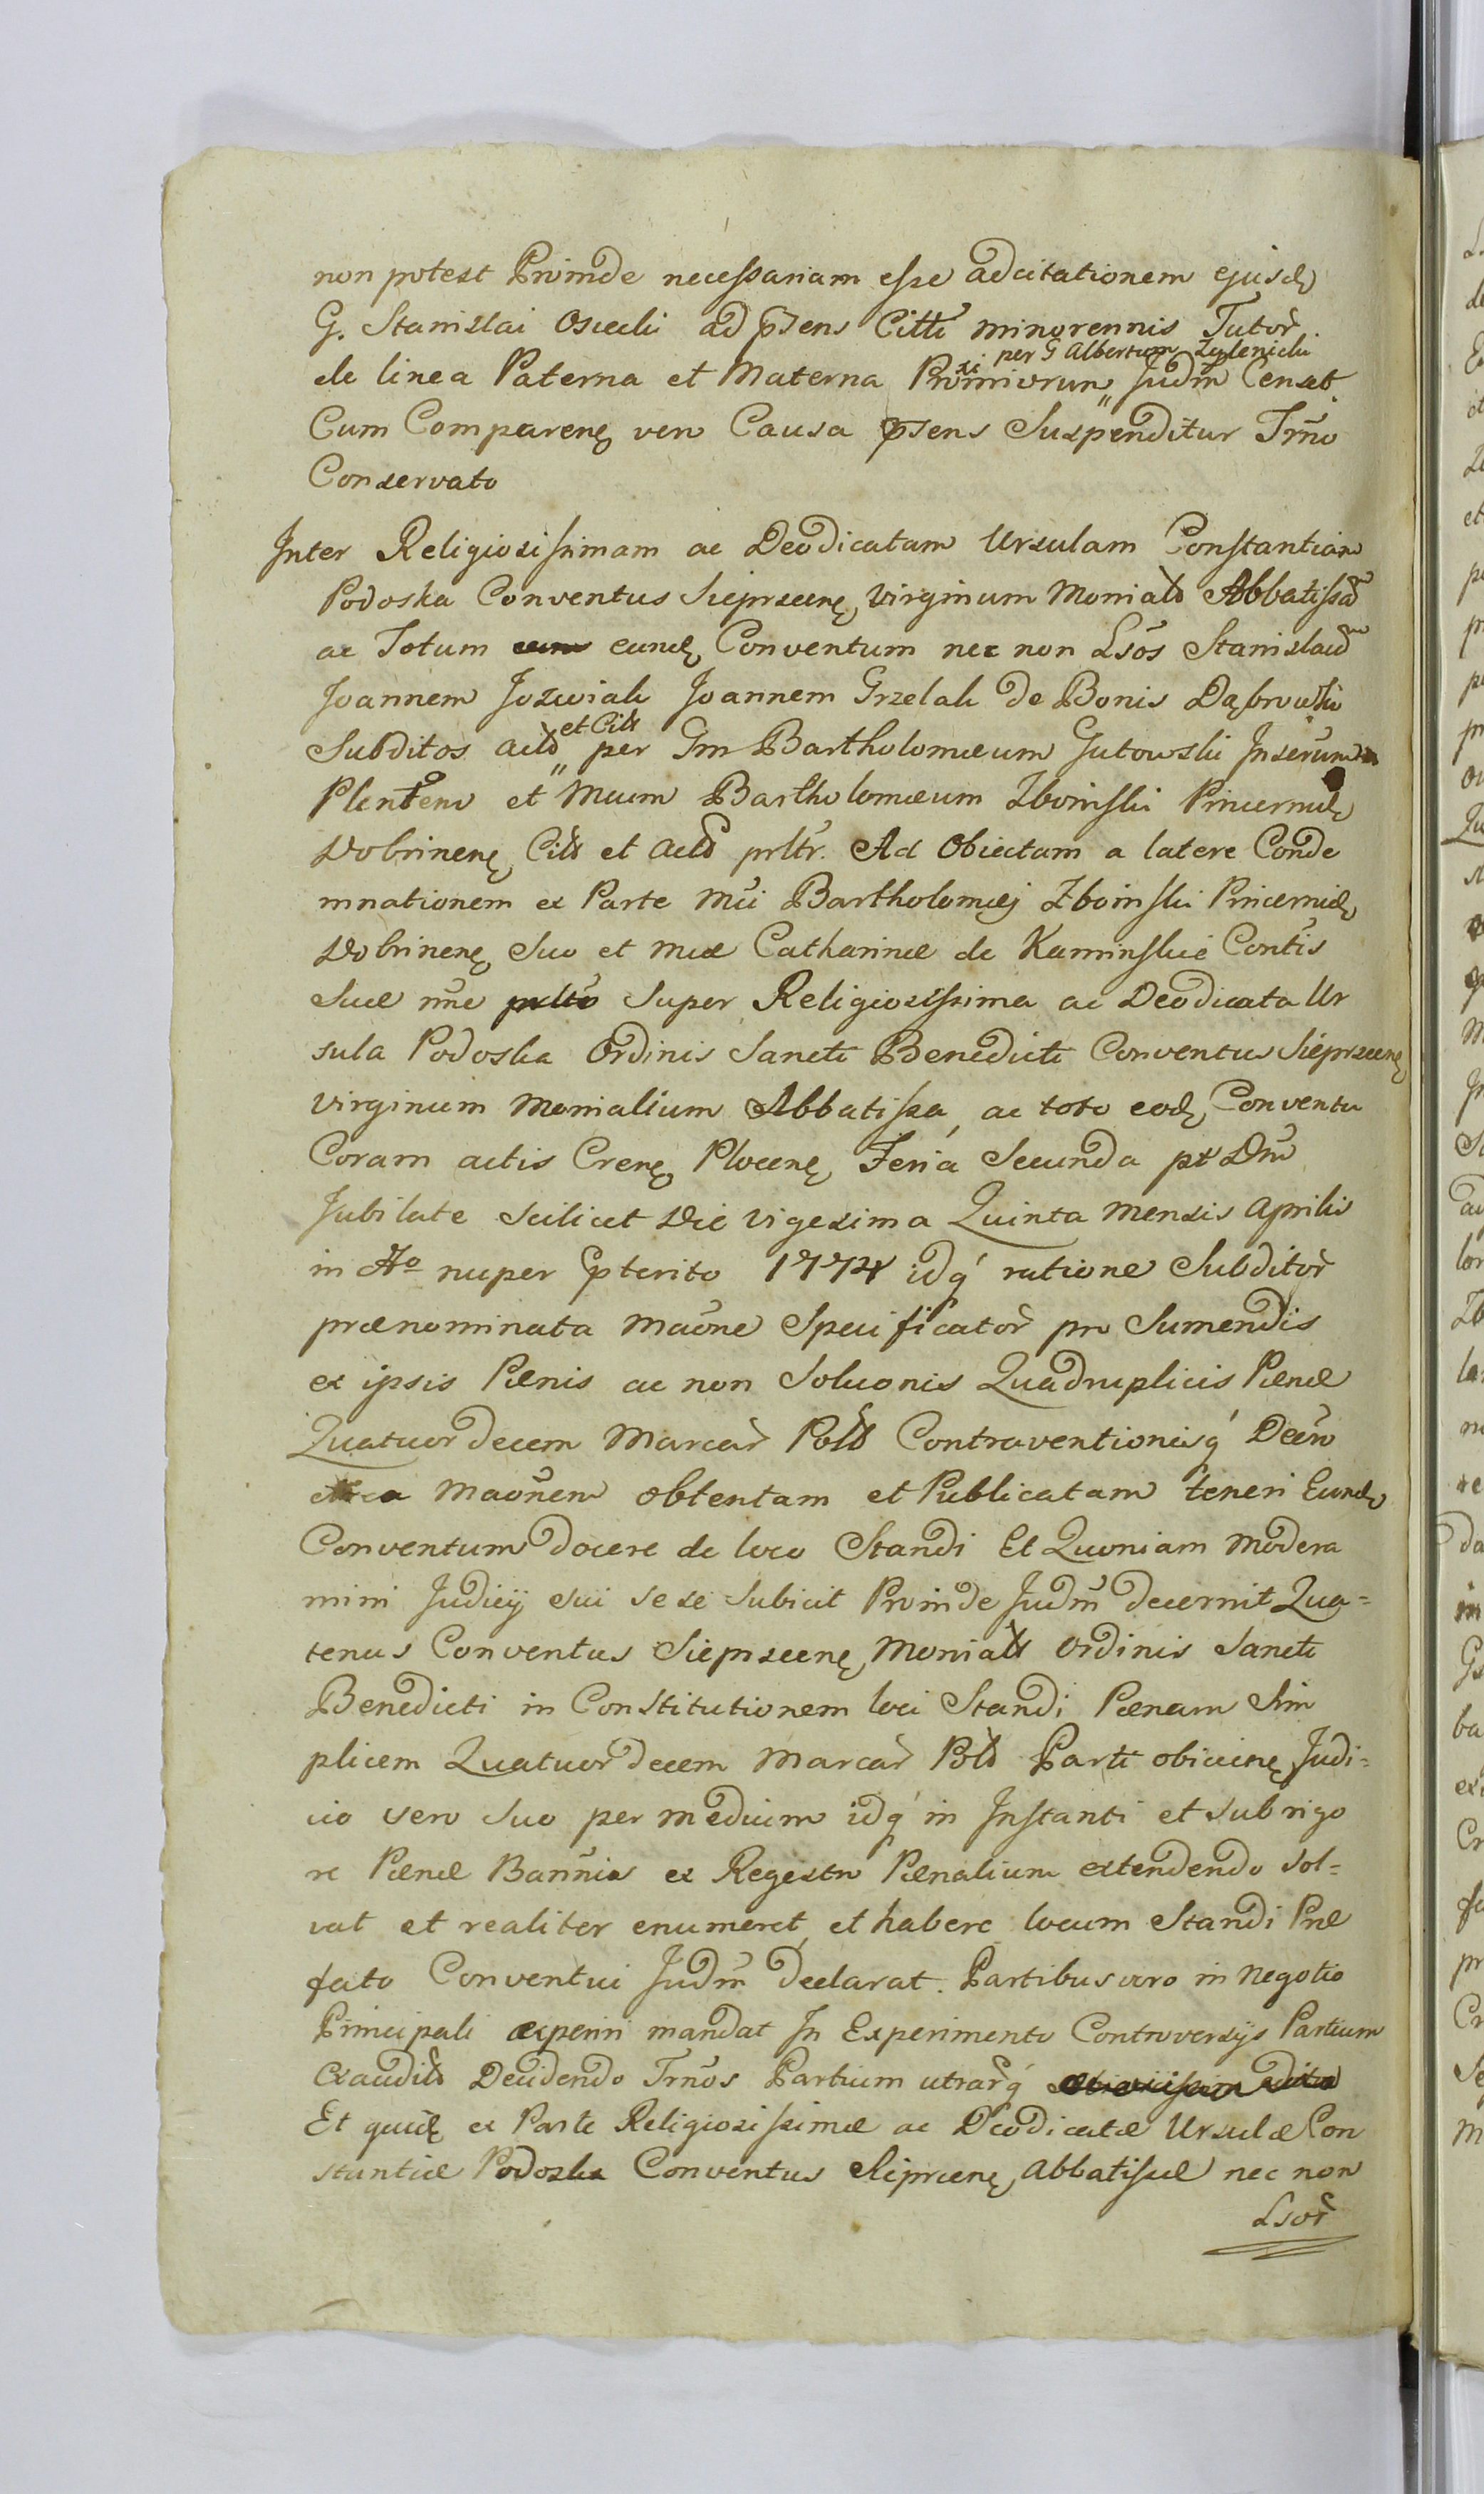 non potest Proinde necessariam esse adcitationem ejusd
G. Stanislai Osiecki ad pſens Citti minorennis Tutor
per G Albertum Zyleniclu
de linea Paterna et Materna Proximiorum Judm Censet
Cum Comparenę vero Causa pſens Suspenditur Trno
Conservato
Inter Religiosissimam ac Deodicatam Ursulam Constantiam
Podoska Conventus Sieprscenę Virginum Monials Abbatissam
ac Totum eund Conventum nec non Lsos Stanislaum
Joannem Jozwiak Joannem Grzelak de Bonis Dąbrowsko
et Cits
Subditos acts per Gm Bartholomæum Gutowski Inserum
Plentem et Mcum Bartholomæum Zboinski Pincernæ
Dobrinenę Cits et acts prltr. Ad Obiectam a latere Conde
mnationem ex Parte Mci Bartholomæj Zboinski Pincernæ
Dobrinenę Suo et Mcæ Catharinæ de Kaminskie Contis
Suæ nne Super Religiosissima ac Deodicata Ur
sula Podoska Ordinis Sancti Benedicti Conventus Sieprscenę
Virginum Monialium Abbatissa, ac toto eod Conventu
Coram actis Crenę Plocenę Feria Secunda pt Dm
Jubilate Scilicet Die Vigesima Quinta Mensis Aprilis
in Ao nuper pterito 1774 idq ratione Subditor
prænominata maone Specificator pro Sumendis
ex ipsis Pænis ac non Soluonis Quadruplicis Pænæ
Quatuordecem Marcar Pols Contraventionisq Decro
circa Maonem obtentam et Publicatam teneri Eund
Conventum docere de loco Standi Et Quoniam Modera
mini Judicij sui sese subicit Proinde Judm decernit Qua=
tenus Conventus Sieprscenę Monials Ordinis Sancti
Benedicti in Constitutionem loci Standi Pænam Sim
plicem Quatuordecem Marcar Pols Parti obicienę Judi=
cio vero Suo per medium idq in Instanti et sub rigo
re Pænæ Bannia ex Regestro Pænalium extendendo Sol=
vat et realiter enumeret, et habere locum Standi Præ
fato Conventui Judm declarat. Partibus vero in Negotio
Principali experiri mandat In Experimento Controversys Partium
Exaudits Decidendo Trnos Partium utrarq
Et quid ex Parte Religiosissimæ ac Deodicatæ Ursulæ Con
stantiæ Podoska Conventus Sieprcenę Abbatissæ nec non
Lsor